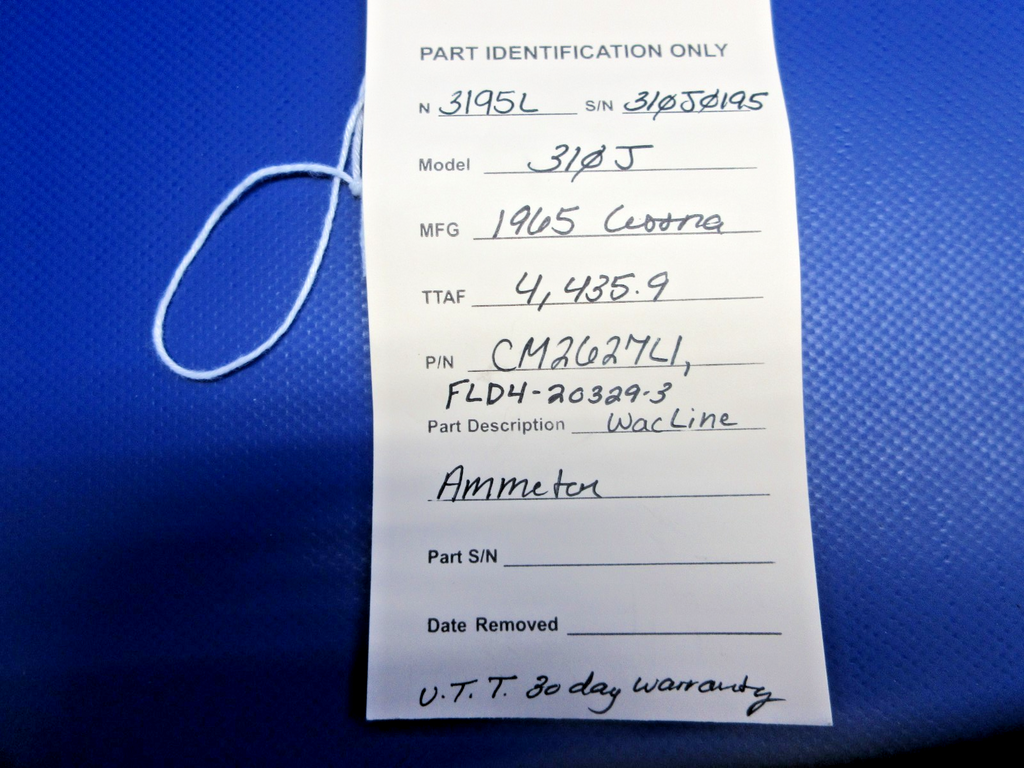 PART IDENTIFICATION ONLY
N 3195L S/N 310J0195
Model 310J
MFG 1965 Cessna
TTAF 4,435.9
P/N CM2627L1,
FLD4-20329-3
Part Description WacLine
Ammeter
Part S/N
Date Removed
U.T.T. 30 day warranty